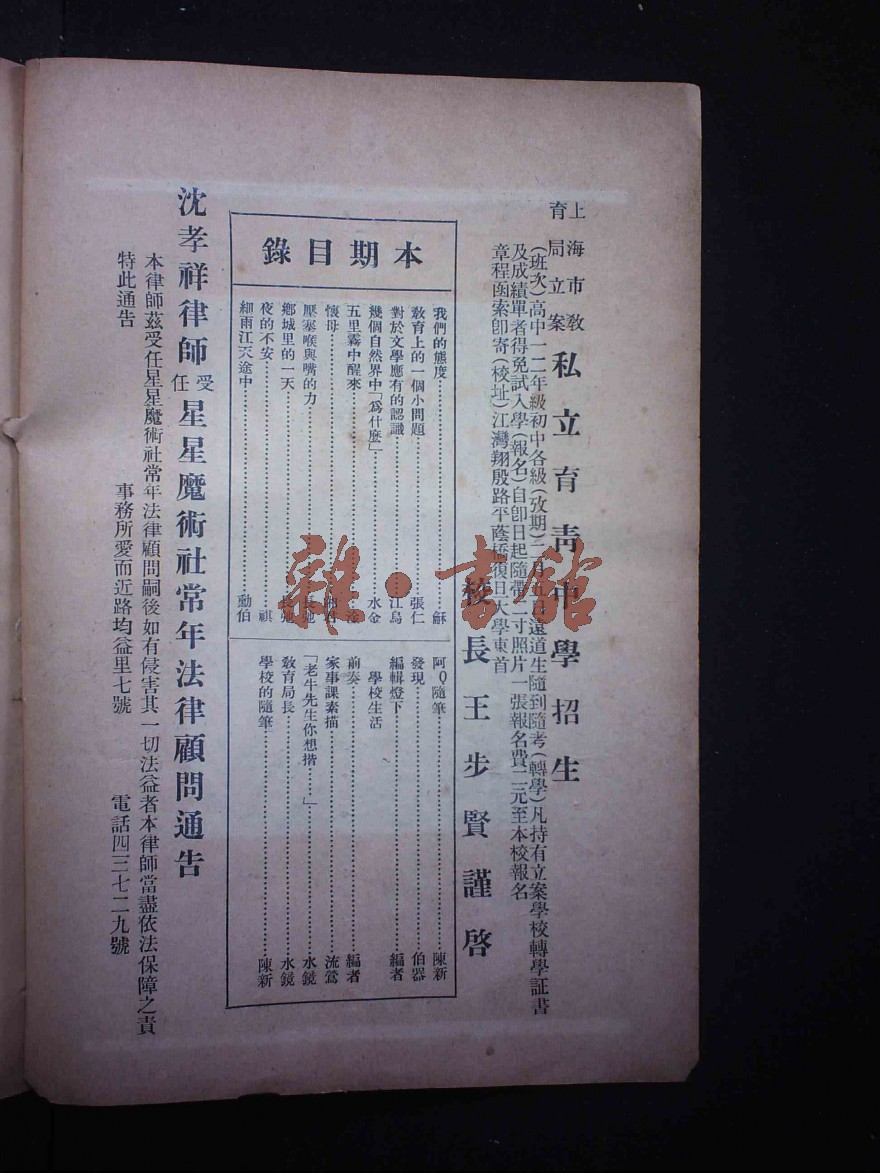 上海市教育局立案
私立育靑中學招生
(班次)高中一二年級初中各級(攷期)二月五日遠道生隨到隨考(轉學)凡持有立案學校轉學証書
及成績單者得免試入學(報名)自卽日起隨帶二寸照片一張報名費二元至本校報名
章程函索卽寄(校址)江灣翔殷路平蔭橋復旦大學東首
校長王步賢謹啓
本期目錄
我們的態度…………穌
敎育上的一個小問題…………張仁
對於文學應有的認識…………江烏
幾個自然界中「爲什麼」…………水金
五里霧中醒來…………
懷母…………
壓塞喉與嘴的力…………長弛
鄉城里的一天…………長弛
夜的不安…………祺
細雨江天途中…………勳伯
阿Q隨筆…………陳新
發現…………伯器
編輯燈下…………編者
學校生活
前奏…………編者
家事課素描…………流鶯
「老牛先生你想揩……」…………水鏡
敎育局長…………水鏡
學校的隨筆…………陳新
沈孝祥律師受任星星魔術社常年法律顧問通告
本律師茲受任星星魔術社常年法律顧問嗣後如有侵害其一切法益者本律師當盡依法保障之責
特此通告 事務所愛而近路均益里七號 電話四三七二九號
雜·書館